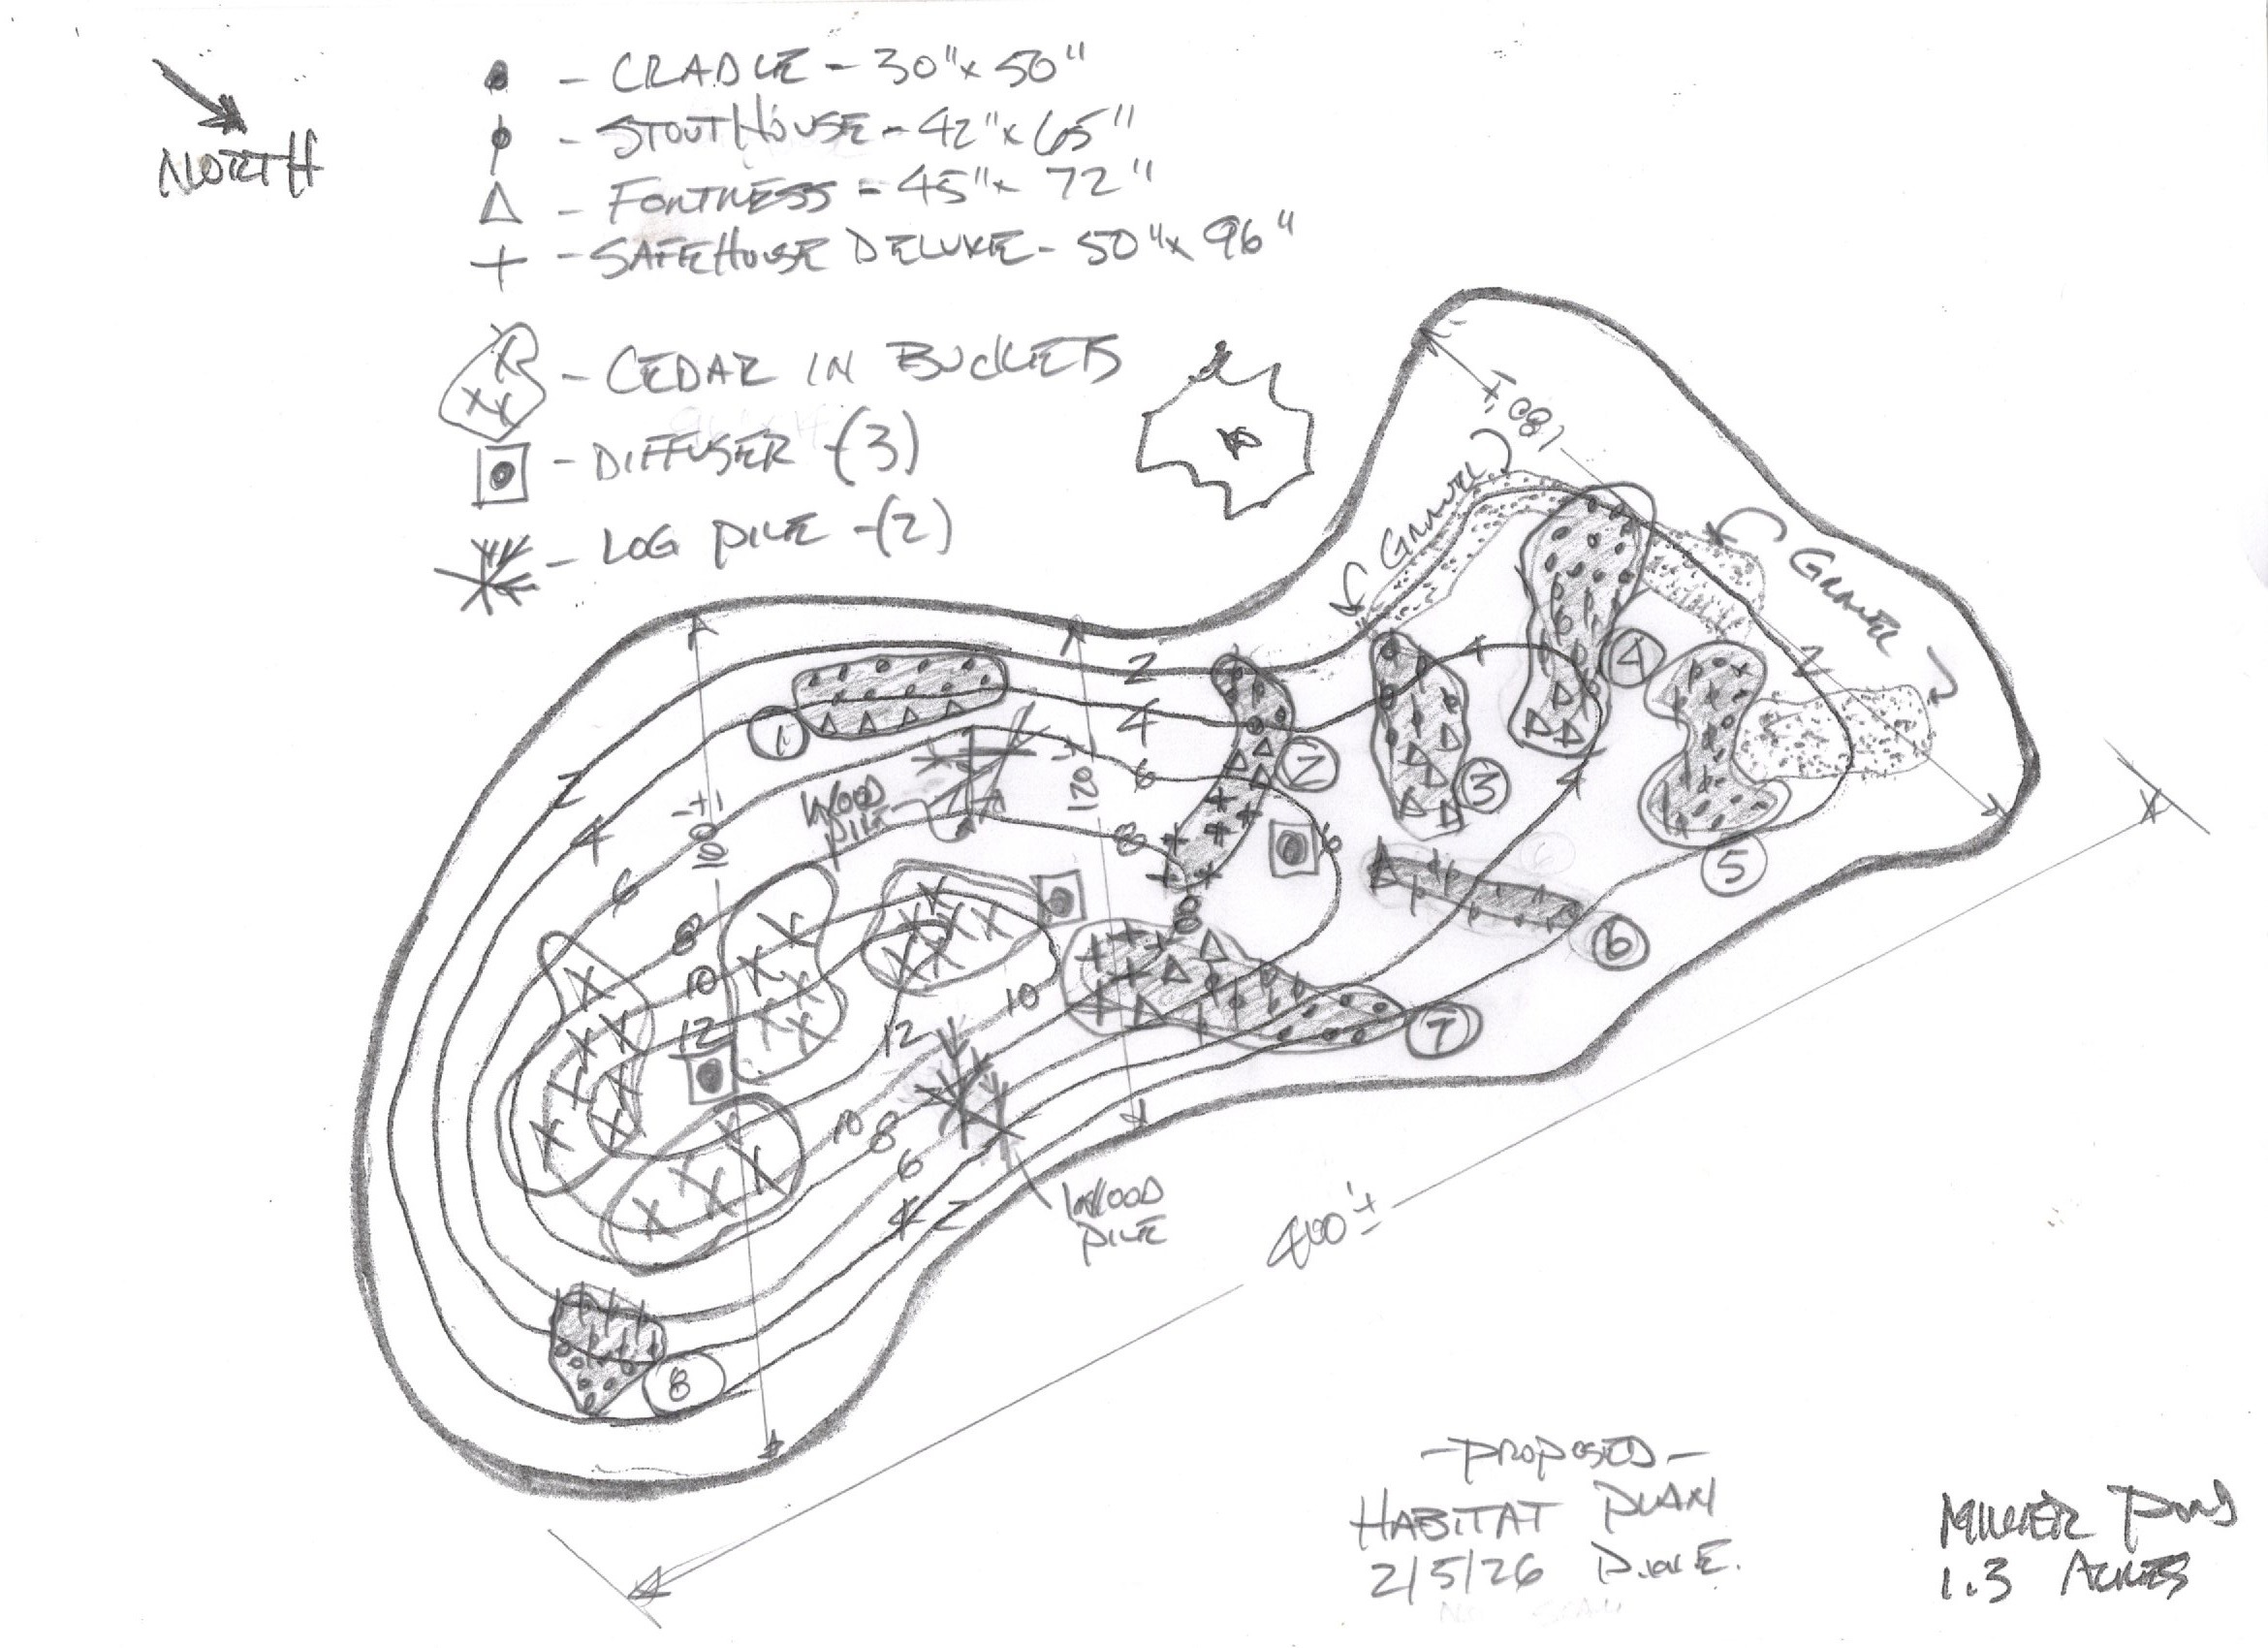 NORTH
- CRADLE - 30" x 50"
- STOUTHOUSE - 42" x 65"
- FORTRESS - 45" x 72"
- SAFEHOUSE DELUXE - 50" x 96"
- CEDAR IN BUCKETS
- DIFFUSER - (3)
- LOG PILE - (2)
180' ±
GRAVEL
GRAVEL
2
4
2
4
6
8
6
2
4
6
8
10
12
100 ±
120 ±
WOOD PILE
1
2
3
4
5
6
7
8
4
4
10
12
10
8
6
4
2
WOOD PILE
400' ±
- PROPOSED -
HABITAT PLAN
2/5/26
MILLER POND
1.3 ACRES